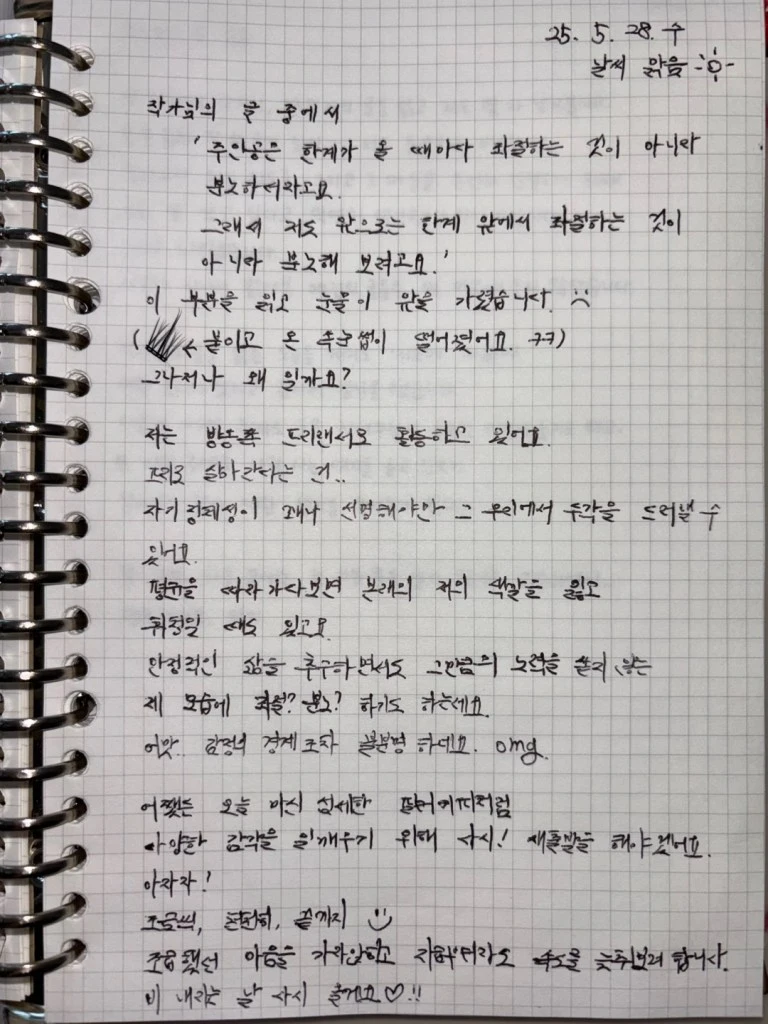 25. 5. 28. 수
날씨 맑음
작가님의 글 중에서
' 주인공은 한계가 올 때마다 좌절하는 것이 아니라
분노하더라고요.
그래서 저도 앞으로는 한계 앞에서 좌절하는 것이
아니라 분노해 보려고요.'
이 부분을 읽고 눈물이 앞을 가렸습니다.
( ← 붙이고 온 속눈썹이 떨어졌어요. ㅋㅋ)
그나저나 왜 일까요?
저는 방송쪽 프리랜서로 활동하고 있어요.
프리로 살아간다는 건..
자기 정체성이 꽤나 선명해야만 그 무리에서 두각을 드러낼 수
있어요.
평균을 따라가다보면 본래의 저의 색깔을 잃고
휘청일 때도 있고요.
안정적인 삶을 추구하면서도 그만큼의 노력을 쏟지 않는
제 모습에 좌절? 분노? 하기도 하는데요.
어맛.. 감정의 경계조차 불분명 하네요. omg.
어쨌든 오늘 마신 섬세한 필터커피처럼
다양한 감각을 일깨우기 위해 다시! 새출발을 해야겠어요.
아자자!
조금씩, 천천히, 끝까지
조급했던 마음을 가라앉히고 지금부터라도 속도를 늦춰보려 합니다.
비 내리는 날 다시 올게요♡!!